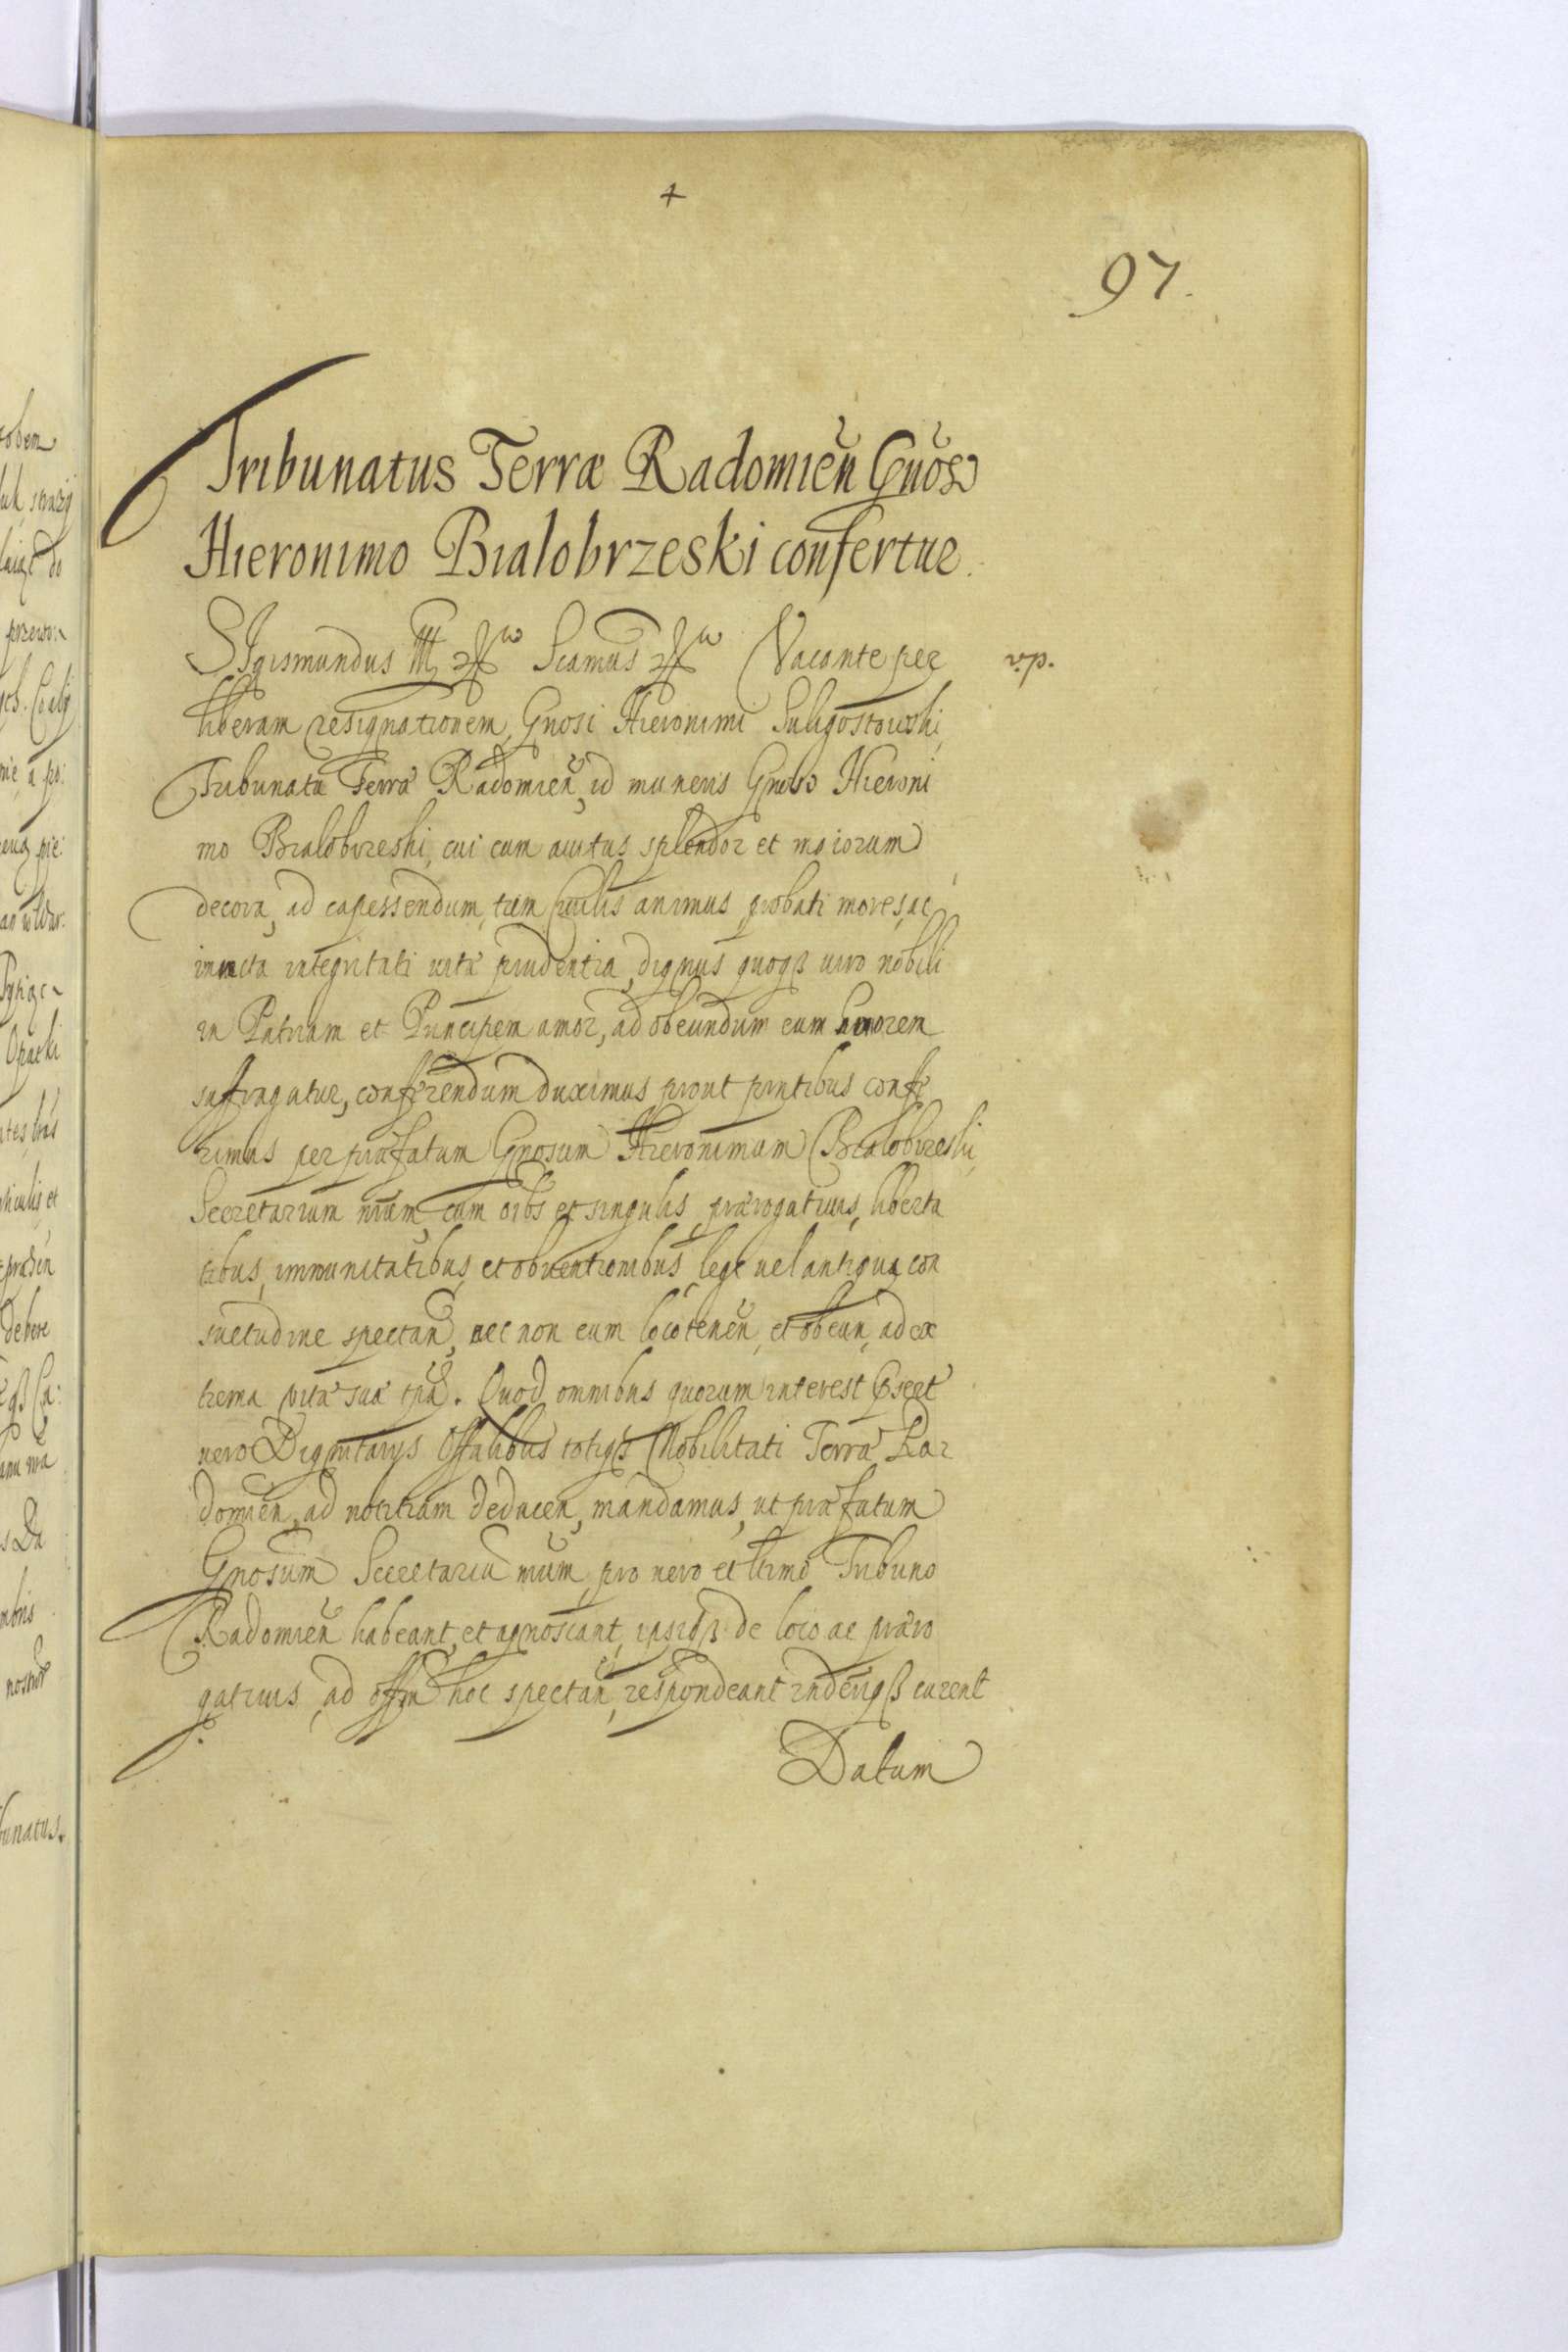 97.
Tribunatus Terræ Radomien̄ Gnōso
Hieronimo Bialobrzeski confertur.
SIgismundus III Scamus Vacante per
liberam resignationem Gnosi Hieronimi Suligostowski
Tribunatu Terræ Radomien̄, id muneris Gnoso Hieroni
mo Bialobrzeski, cui cum auitus splendor et maiorum
decora, ad capessendum, tum ciuilis animus, probati mores, ac
iuncta integritati uitæ prudentia, dignus quoqꝫ uiro nobili
in Patriam et Principem amor, ad obeundum eum honorem
suffragatur, conferendum duximus prout pr̄ntibus confe
rimus per præfatum Gnosum Hieronimum Bialobrzeski
Secretarium nr̄um, cum oībs et singulis, prærogatiuis, liberta
tibus, immunitatibus, et obuentionibus, lege uel antiqua con
suetudine spectan̄, nec non eum loco tenen̄, et obeun̄, ad ex
trema uitæ suæ tp̄a. Quod omnibus quorum interest
uero Dignitarijs Offālibus totiqꝫ Nobilitati Terræ Ra
domien̄, ad notitiam deducen̄, mandamus, ut præfatum
Gnosum Secretariū nr̄um, pro uero et ltimo Tribuno
Radomien̄ habeant, et agnoscant, ipsiqꝫ de loco ac præro
gatiuis, ad offm̄ hoc spectan̄, respondeant, inderiqꝫ curent
Datum